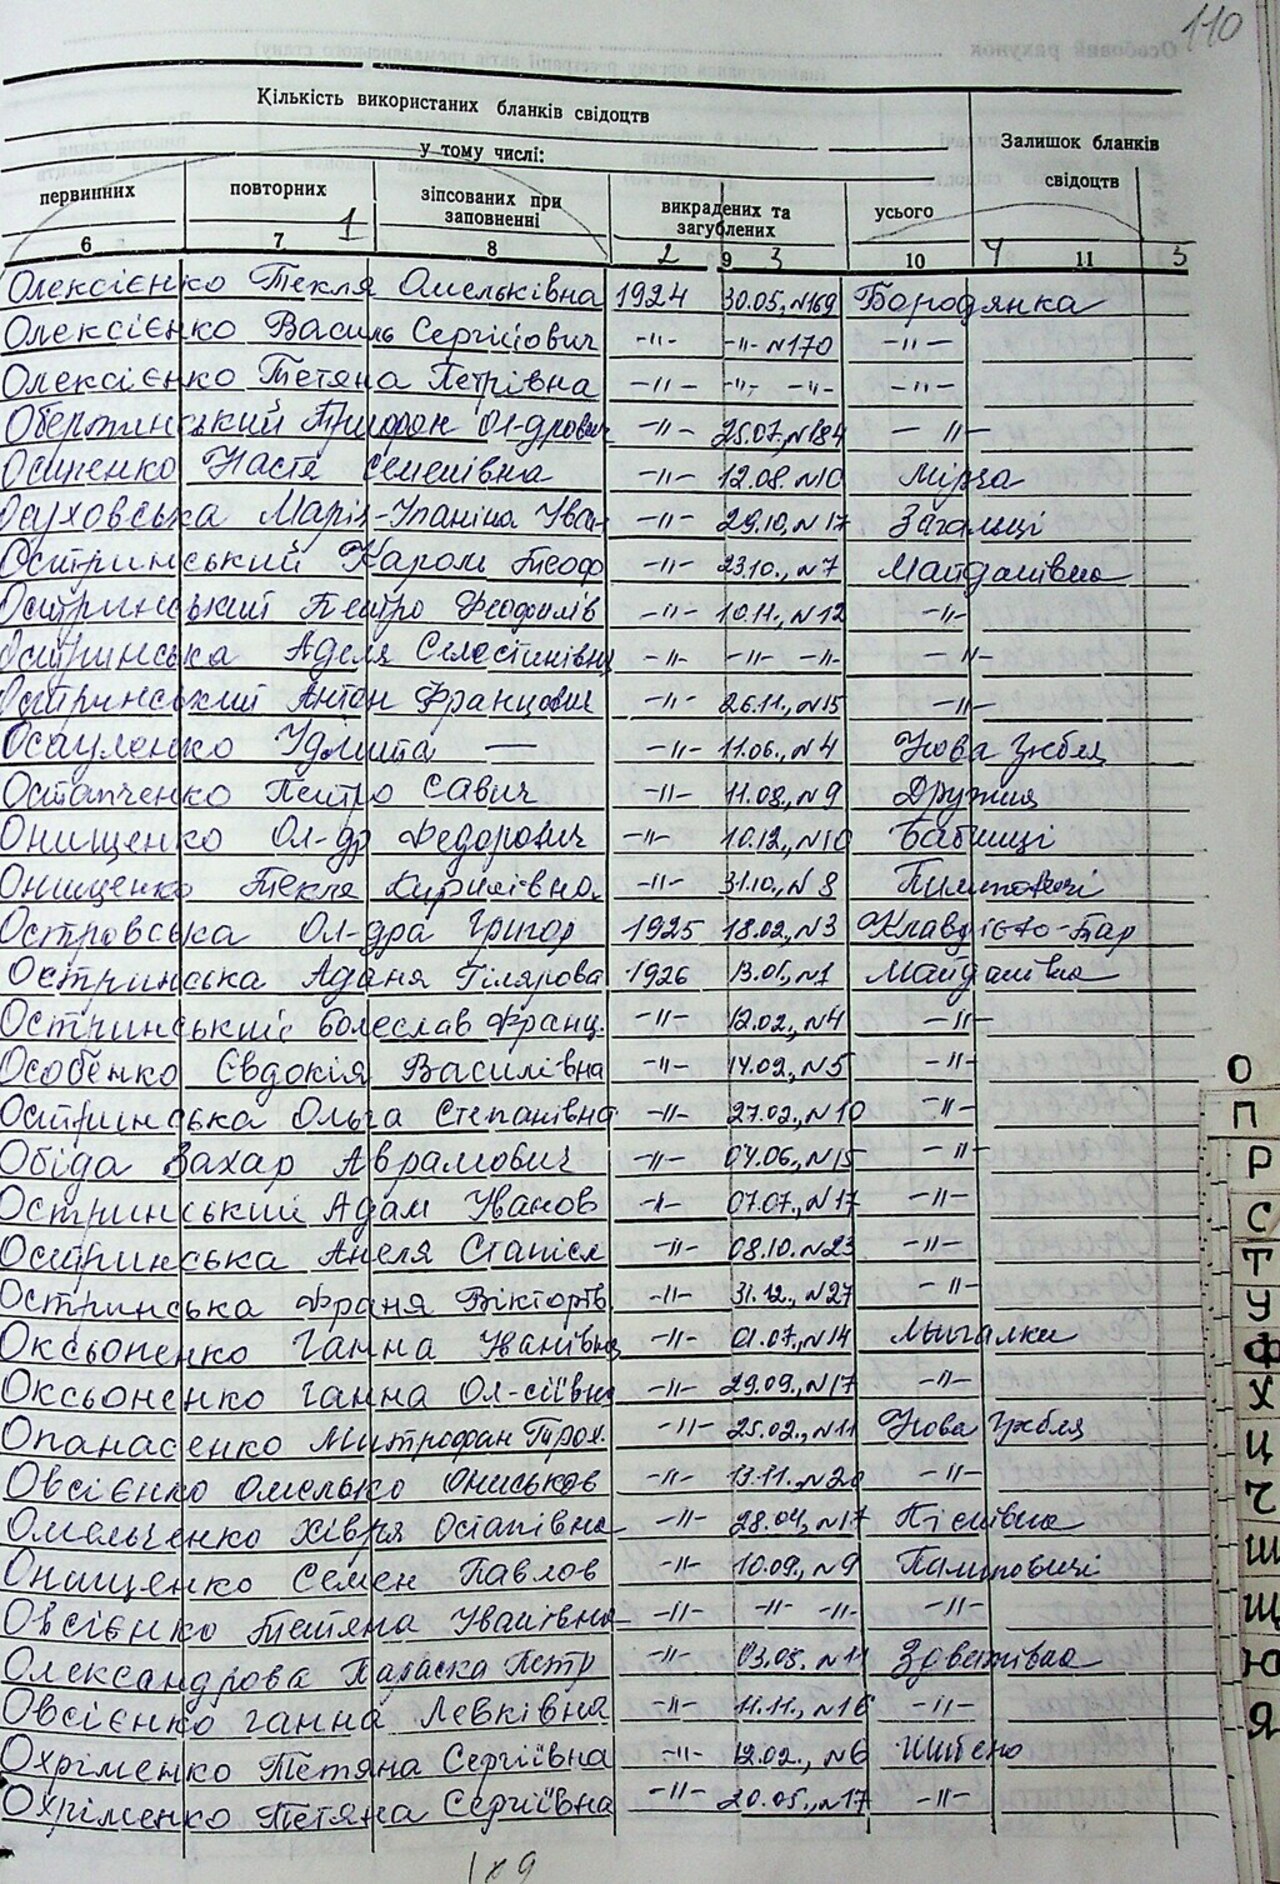 110
Кількість використаних бланків свідоцтв
у тому числі:
Залишок бланків свідоцтв
первинних повторних зіпсованих при заповненні викрадених та загублених усього
1
6 7 8 9 10 11
2 3 4 5
Олексієнко Текля Омельківна 1924 30.05., №169 Бородянка
Олексієнко Василь Сергійович -"- -"- №170 -"-
Олексієнко Тетяна Петрівна -"- -"- -"- -"-
Трифон Ол-дрович -"- 25.07., №184 -"-
Осипенко Настя Семенівна -"- 12.08. №10 Мірча
Осуховська Марія- Іван- -"- 29.10., №17 Загальці
Остринський Кароль Теоф -"- 23.10., №7 Майданівка
Остринський Петро Феофилів -"- 10.11., №12 -"-
Остринська Аделя Селестинівна -"- -"- -"- -"-
Остринський Антон Францович -"- 26.11., №15 -"-
Осауленко — -"- 11.06., №4 Нова Гребля
Остапченко Петро Савич -"- 11.08., №9 Дружня
Онищенко Ол-др Федорович -"- 10.12., №10 Бабинці
Онищенко Текля Кирилівна -"- 31.10., №8 Пилиповичі
Островська Ол-дра Григор 1925 18.02., №3 Клавдієво-Тар
Остринська Аданя Гілярова 1926 13.01., №1 Майданівка
Остринський Болеслав Франц. -"- 12.02., №4 -"-
Особенко Євдокія Василівна -"- 14.02., №5 -"-
Остринська Ольга Степанівна -"- 27.02., №10 -"-
Обіда Захар Аврамович -"- 04.06., №15 -"-
Остринський Адам Іванов -"- 07.07., №17 -"-
Остринська Анеля Станісл -"- 08.10. №23 -"-
Остринська Франя Вікторів -"- 31.12., №27 -"-
Оксьоненко Ганна Іванівна -"- 01.07., №14 Мигалки
Оксьоненко Ганна Ол-сіївна -"- 29.09., №17 -"-
Опанасенко Митрофан Трох. -"- 25.02., №11 Нова Гребля
Овсієнко Омелько Ониськов -"- 13.11., №20 -"-
Омельченко Хівря Остапівна -"- 28.04., №17 Пісківка
Онищенко Семен Павлов -"- 10.09., №9 Пилиповичі
Овсієнко Тетяна Іванівна -"- -"- -"- -"-
Олександрова Параска Петр -"- 03.05. №11 Здвижівка
Овсієнко Ганна Левківна -"- 11.11., №16 -"-
Охріменко Тетяна Сергіївна -"- 12.02., №6 Шибено
Охріменко Тетяна Сергіївна -"- 20.05., №17 -"-
109
О
П
Р
С
Т
У
Ф
Х
Ц
Ч
Ш
Щ
Ю
Я